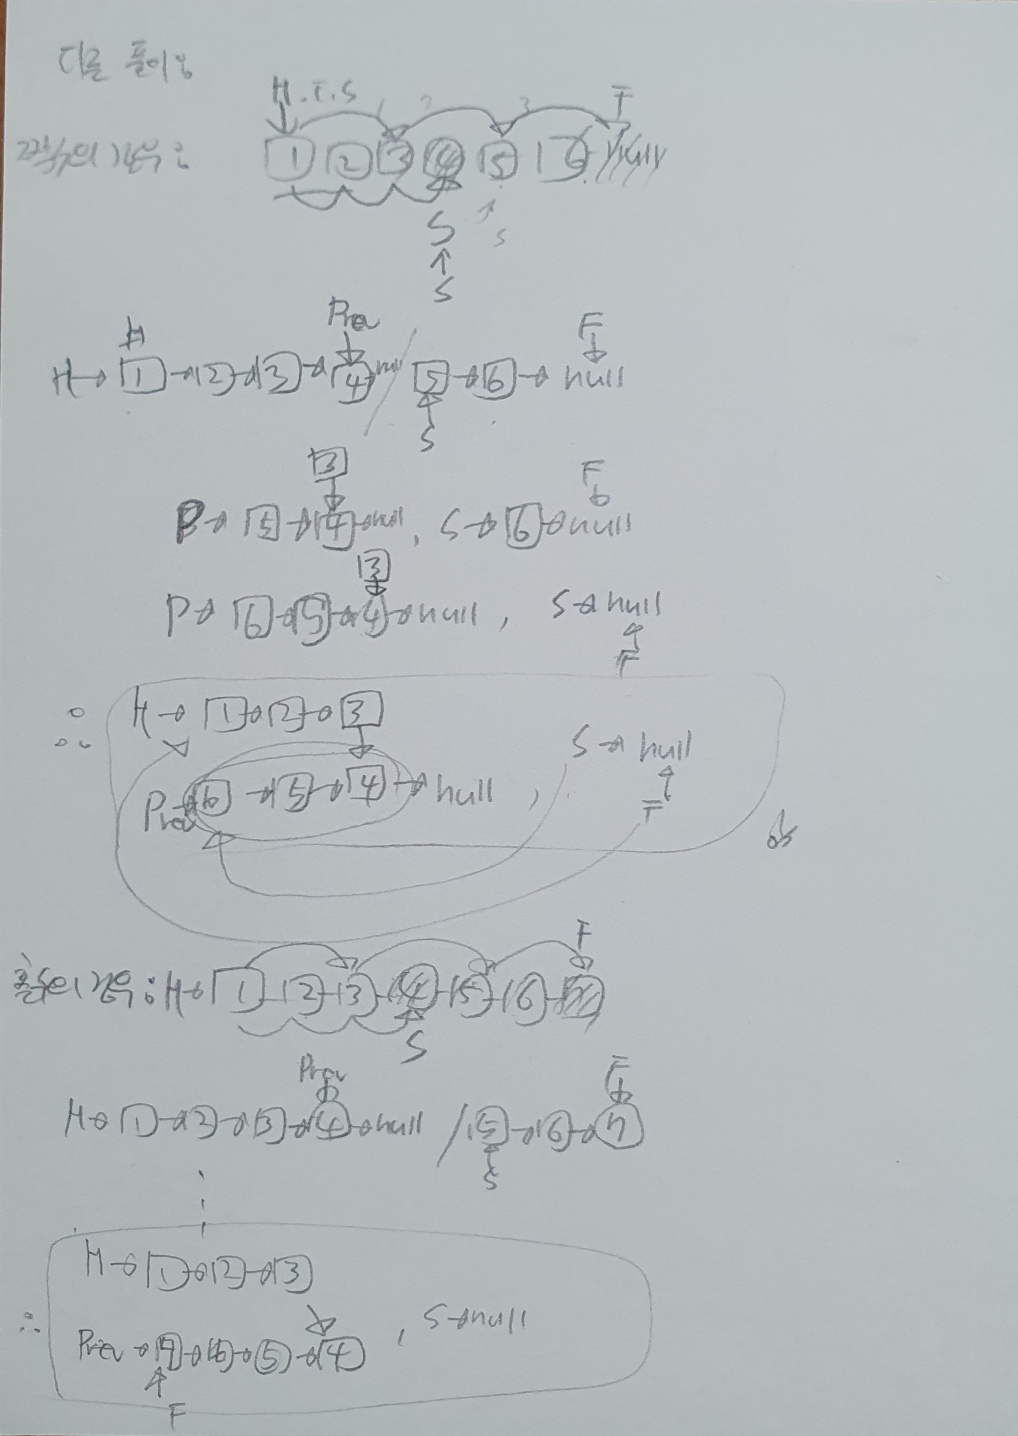 다른 풀이
H.F.S 1 2 3 F
짝수의 경우: 1 2 3 4 5 6 null
S S
S
H Prev F
H→ 1 → 2 → 3 → 4 null / 5 → 6 → null
S
3 F
P→ 5 → 4 → null, S→ 6 → null
3
P→ 6 → 5 → 4 → null, S→ null
F
∴ H→ 1 → 2 → 3
S→ null
Prev→ 6 → 5 → 4 → null,
F
F
홀수의 경우: H→ 1 2 3 4 5 6 7
S
Prev F
H→ 1 → 2 → 3 → 4 → null / 5 → 6 → 7
S
H→ 1 → 2 → 3
∴ Prev→ 7 → 6 → 5 → 4, S→ null
F